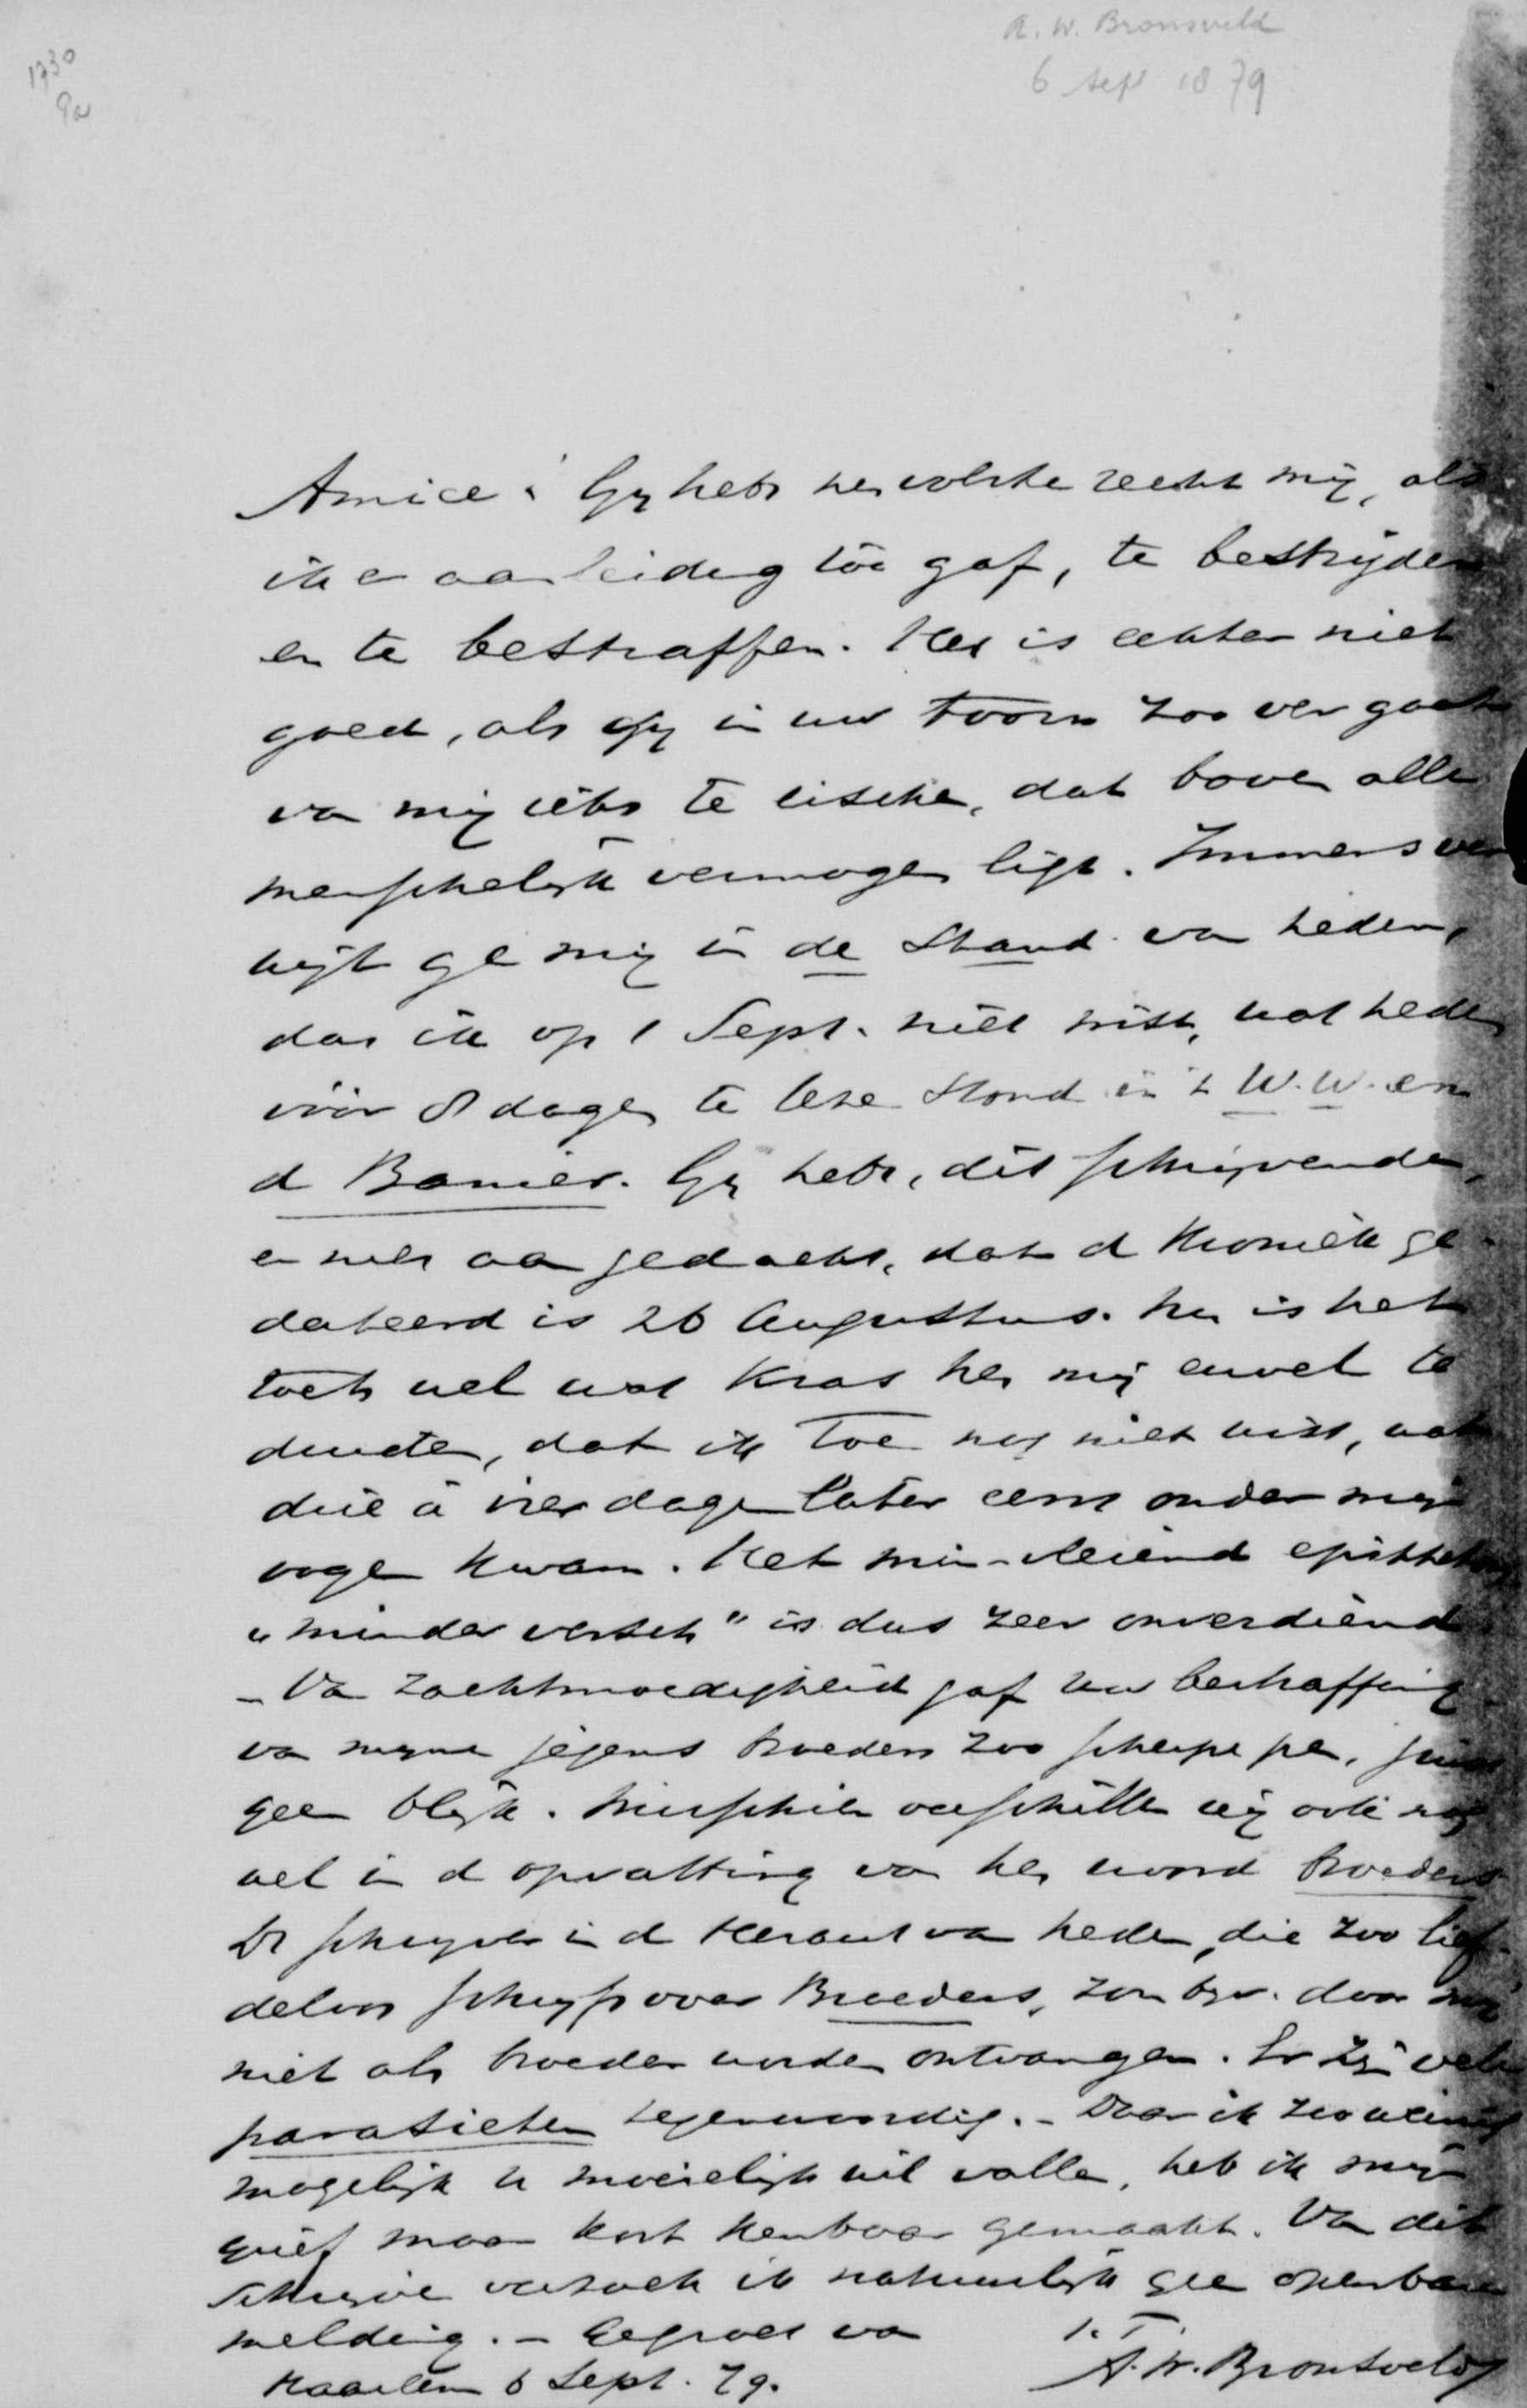 A. W. Bronsveld
6 Sept 1879
1730
Amice! Gy hebt het volste recht mij, als
ik er aanleiding toe gaf, te bestrijden
en te bestraffen. Het is echter niet
goed, als Gy in uw toorn zoo ver gaat
van mij iets te eischen, dat boven alle
menschelijk vermogen ligt. Immers ver
wijt ge mij in de Stand. van heden,
dat ik op 1 Sept. niet wist, wat heden
vóór 8 dagen te lezen stond in 't W.W. en
de Banier. Gij hebt, dit schrijvende,
er niet aan gedacht, dat de Kroniek ge-
dateerd is 26 Augustus. Nu is het
toch wel wat kras het mij euvel te
duiden, dat ik toen nog niet wist, wat
drie à vier dagen later eerst onder mijn
oogen kwam. Het min-vleiend epitheton
"minder versch" is dus zeer onverdiend.
– Van zachtmoedigheid gaf uw bestraffing
van mijne jegens broeders zoo scherpe pen, juist
geen blijk. Misschien verschillen wij ook nog
wel in de opvatting van het woord broeders.
De schrijver in de Heraut van heden, die zoo lief-
deloos schrijft over Broeders, zou bijv. door mij
niet als broeder worden ontvangen. Er zijn vele
parasieten tegenwoordig. – Daar ik zoo weinig
mogelijk u moeielijk wil vallen, heb ik mijn
grief maar kort kenbaar gemaakt. Van dit
schrijven verzoek ik natuurlijk geen openbare
melding. – Gegroet van
t.t.
A. W. Bronsveld
Haarlem 6 Sept. 79.